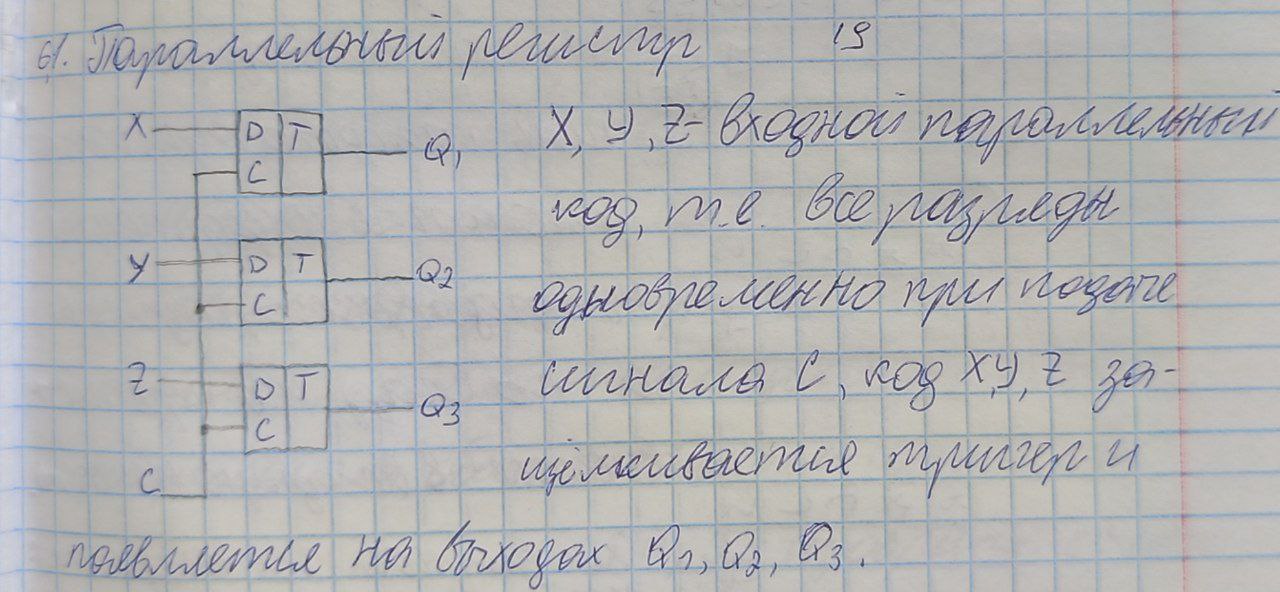 6.1. Параллельный регистр 19
X D T Q1
C
X, У, Z - входной параллельный
код, т.е. все разряды
У D T Q2
C
одновременно при подаче
Z D T Q3
C
сигнала С, код X,У, Z за-
щёлкивается тригер и
C
появляется на выходах Q1, Q2, Q3.